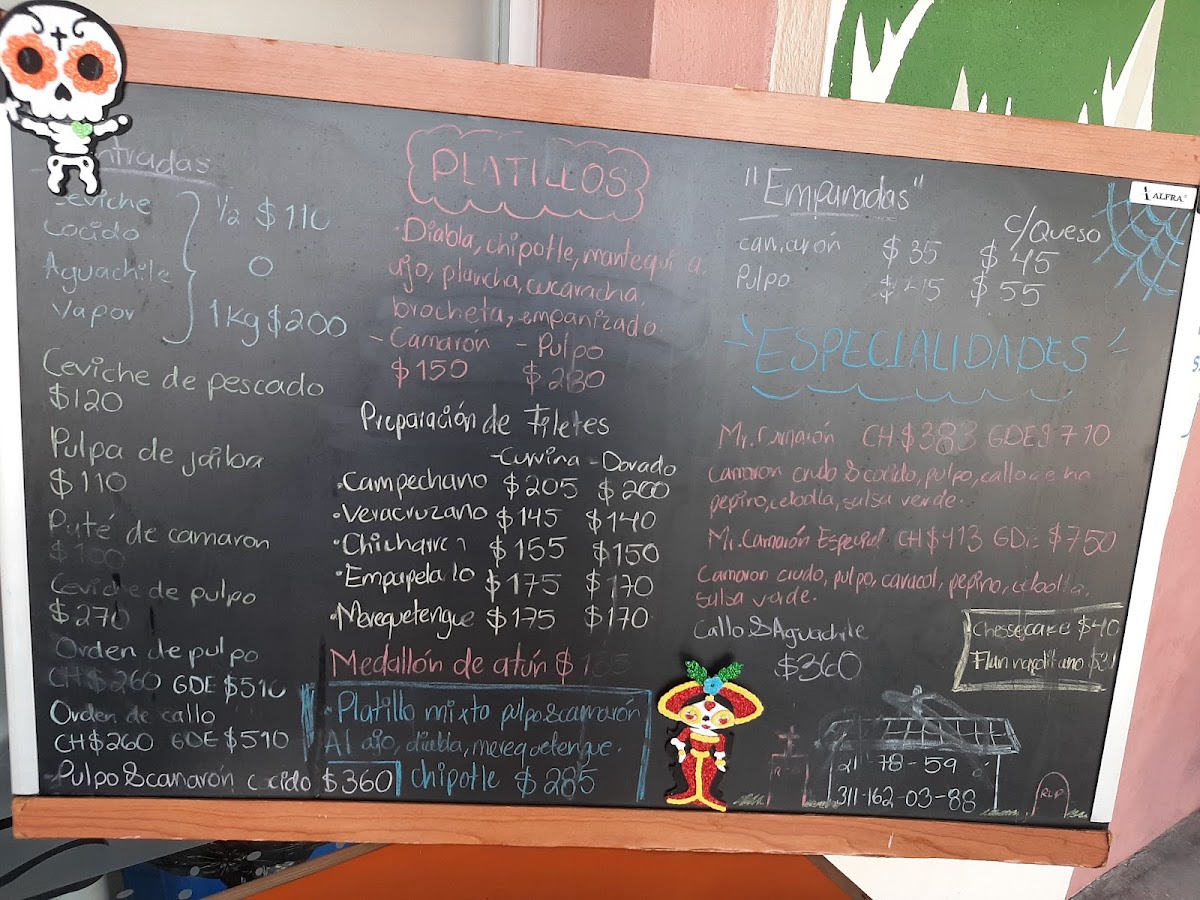 Entradas
Ceviche
Cocido
Aguachile
Vapor
1/2 $110
O
1Kg $200
Ceviche de pescado
$120
Pulpa de jaiba
$110
Paté de camaron
$100
Ceviche de pulpo
$270
Orden de pulpo
CH $260 GDE $510
Orden de callo
CH $260 GDE $510
Pulpo & camarón cocido $360
PLATILLOS
· Diabla, chipotle, mantequilla
ajo, plancha, cucaracha,
brocheta, empanizado.
- Camarón - Pulpo
$150 $280
Preparación de Filetes
- Curvina - Dorado
· Campechano $205 $200
· Veracruzano $145 $140
· Chicharron $155 $150
· Empapelado $175 $170
· Merequetengue $175 $170
Medallón de atún $165
· Platillo mixto pulpo & camarón
Al ajo, diabla, merequetengue.
chipotle $285
"Empanadas"
c/Queso
camarón $35 $45
Pulpo $45 $55
ESPECIALIDADES
Mr. Camarón CH $383 GDE $710
Camaron crudo & cocido, pulpo, callo de ha
pepino, cebolla, salsa verde.
Mr. Camarón Especial CH $413 GDE $750
Camaron crudo, pulpo, caracol, pepino, cebolla,
salsa verde.
Callo & Aguachile
$360
Chessecake $40
Flan napolitano
21-78-59 ó
311-162-03-88
R.I.P
ALFRA